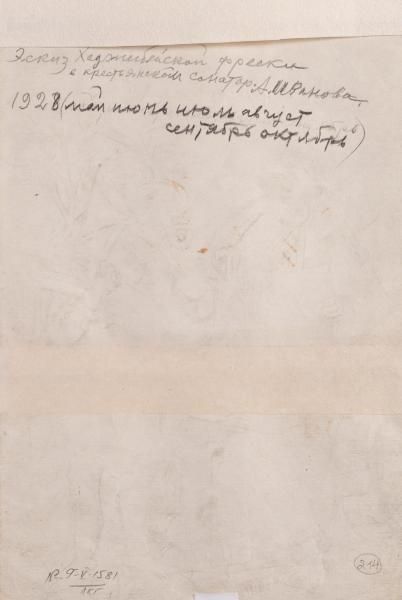 Эскиз Хаджибейской фрески
в крестьянском санатор. А. Иванова.
1928 (май июнь июль август
сентябрь октябрь)
№ 9-V-1581
1кг
214